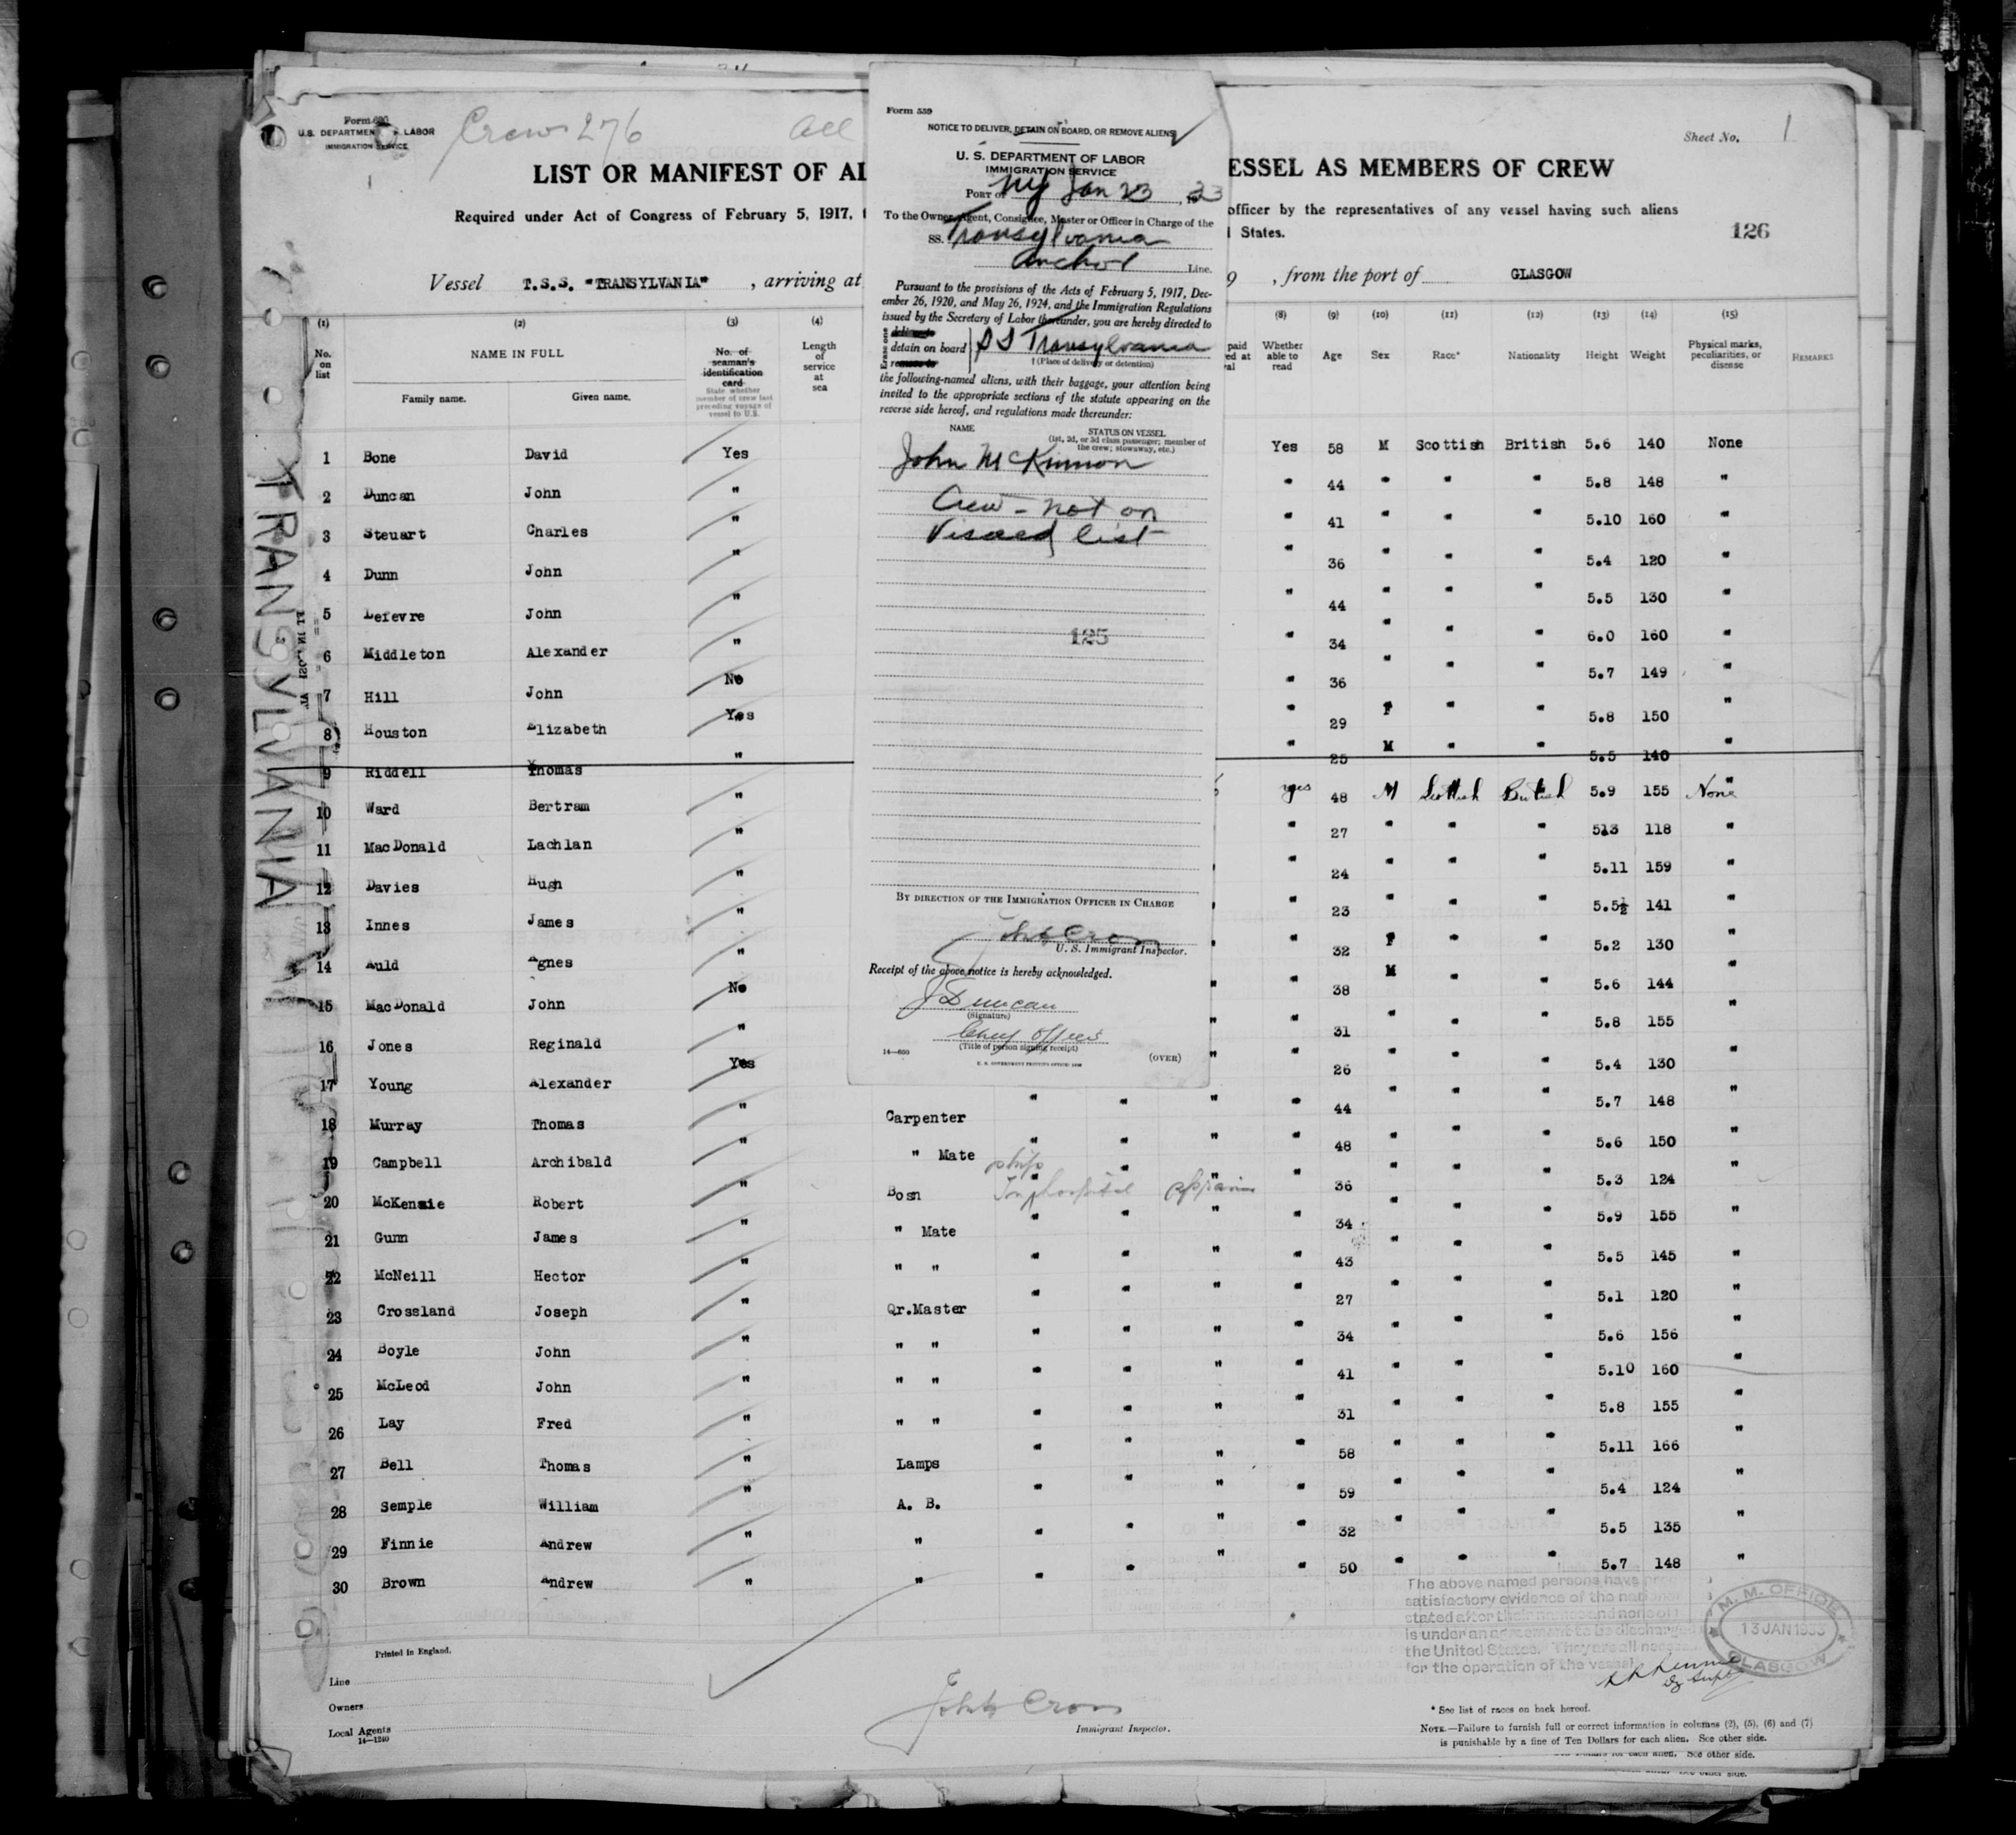 Form 680
U.S. DEPARTMENT OF LABOR
IMMIGRATION SERVICE
Crew 276
all
Sheet No. 1
LIST OR MANIFEST OF AL
ESSEL AS MEMBERS OF CREW
Required under Act of Congress of February 5, 1917, t
officer by the representatives of any vessel having such aliens
States.
126
Vessel T.S.S. "TRANSYLVANIA", arriving at
9, from the port of GLASGOW
TRANSYLVANIA
Form 559
NOTICE TO DELIVER, DETAIN ON BOARD, OR REMOVE ALIENS
U. S. DEPARTMENT OF LABOR
IMMIGRATION SERVICE
PORT OF NY Jan 23, 33
To the Owner, Agent, Consignee, Master or Officer in Charge of the
SS. Transylvania
Anchor Line.
Pursuant to the provisions of the Acts of February 5, 1917, Dec-
ember 26, 1920, and May 26, 1924, and the Immigration Regulations
issued by the Secretary of Labor thereunder, you are hereby directed to
Erase one
deliver to
detain on board
remove to
SS Transylvania
† (Place of delivery or detention)
the following-named aliens, with their baggage, your attention being
invited to the appropriate sections of the statute appearing on the
reverse side hereof, and regulations made thereunder:
NAME
STATUS ON VESSEL
(1st, 2d, or 3d class passenger; member of
the crew; stowaway, etc.)
John McKinnon
Crew - not on
Visaed list
125
BY DIRECTION OF THE IMMIGRATION OFFICER IN CHARGE
John Cron
U. S. Immigrant Inspector.
Receipt of the above notice is hereby acknowledged.
J Duncan
(Signature)
Chief Officer
(Title of person signing receipt)
14—650
(OVER)
(1) (2) (3) (4) (8) (9) (10) (11) (12) (13) (14) (15)
No. on list
NAME IN FULL
Family name. Given name.
No. of seaman's identification card
State whether member of crew last preceding voyage of vessel to U.S.
Length of service at sea
Whether able to read
Age Sex Race* Nationality Height Weight
Physical marks, peculiarities, or disease
REMARKS
1 Bone David Yes Yes 58 M Scottish British 5.6 140 None
2 Duncan John " " 44 " " " 5.8 148 "
3 Steuart Charles " " 41 " " " 5.10 160 "
4 Dunn John " " 36 " " " 5.4 120 "
5 Lefevre John " " 44 " " " 5.5 130 "
6 Middleton Alexander " " 34 " " " 6.0 160 "
7 Hill John No " 36 " " " 5.7 149 "
8 Houston Elizabeth Yes " 29 F " " 5.8 150 "
9 Riddell Thomas " " 25 M " " 5.5 140 "
10 Ward Bertram " yes 48 M Scottish British 5.9 155 None
11 MacDonald Lachlan " " 27 " " " 513 118 "
12 Davies Hugh " " 24 " " " 5.11 159 "
13 Innes James " " 23 " " " 5.5½ 141 "
14 Auld Agnes " " 32 F " " 5.2 130 "
15 MacDonald John No " 38 M " " 5.6 144 "
16 Jones Reginald " " 31 " " " 5.8 155 "
17 Young Alexander Yes " 26 " " " 5.4 130 "
18 Murray Thomas " Carpenter " " " " 44 " " " 5.7 148 "
19 Campbell Archibald " " Mate " " " " 48 " " " 5.6 150 "
ships
20 McKenzie Robert " Bosn In hospital " 36 " " " 5.3 124 "
21 Gunn James " " Mate " " " " 34 " " " 5.9 155 "
22 McNeill Hector " " " " " " " 43 " " " 5.5 145 "
23 Crossland Joseph " Qr.Master " " " " 27 " " " 5.1 120 "
24 Boyle John " " " " " " " 34 " " " 5.6 156 "
25 McLeod John " " " " " " " 41 " " " 5.10 160 "
26 Lay Fred " " " " " " " 31 " " " 5.8 155 "
27 Bell Thomas " Lamps " " " " 58 " " " 5.11 166 "
28 Semple William " A. B. " " " " 59 " " " 5.4 124 "
29 Finnie Andrew " " " " " " 32 " " " 5.5 135 "
30 Brown Andrew " " " " " " 50 " " " 5.7 148 "
The above named persons have
satisfactory evidence of the
stated after their names and none of
is under an agreement to be discharge
the United States. They are all
for the operation of the vessel
M. M. OFFICE
13 JAN 1933
GLASGOW
Printed in England.
Line
Owners
Local Agents
14—1240
John Cron
Immigrant Inspector.
* See list of races on back hereof.
NOTE.—Failure to furnish full or correct information in columns (2), (5), (6) and (7)
is punishable by a fine of Ten Dollars for each alien. See other side.
for each alien. See other side.